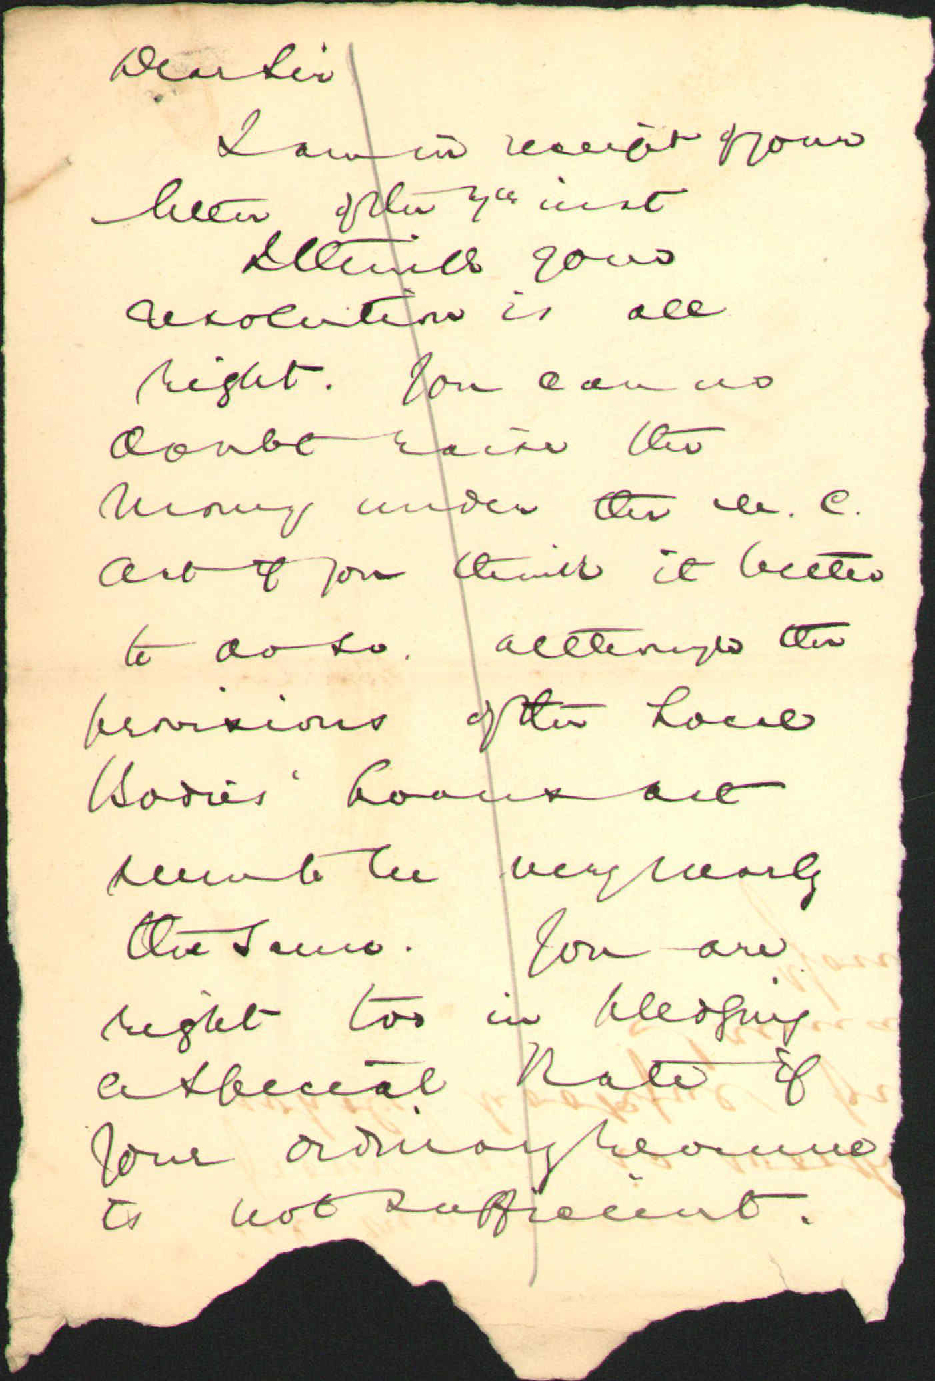 Dear Sir
I am in receipt of your
letter of the 7th inst
I think your
resolution is all
right. You can no
doubt raise the
money under the M. C.
Act if you think it better
to do so. although the
provisions of the Local
Bodies' Loans Act
seem to be very nearly
the same. You are
right too in pledging
a special Rate if
your ordinary revenue
is not sufficient.